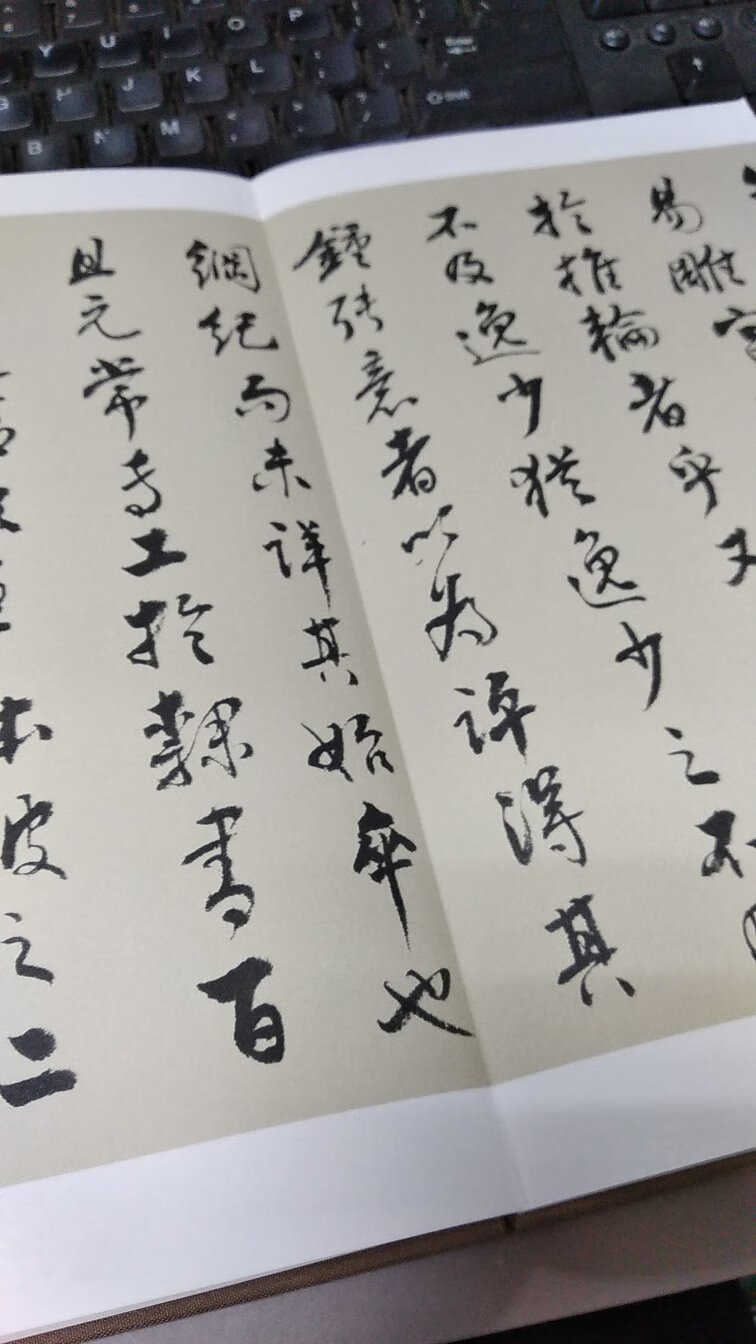 Y U I O P
H J K L
Enter
B N M
Shift
易雕宮
於椎輪者乎又
不及逸少猶逸少之不
鍾張意者以為評得其
綱紀而未詳其始卒也
且元常專工於隸書百
之二